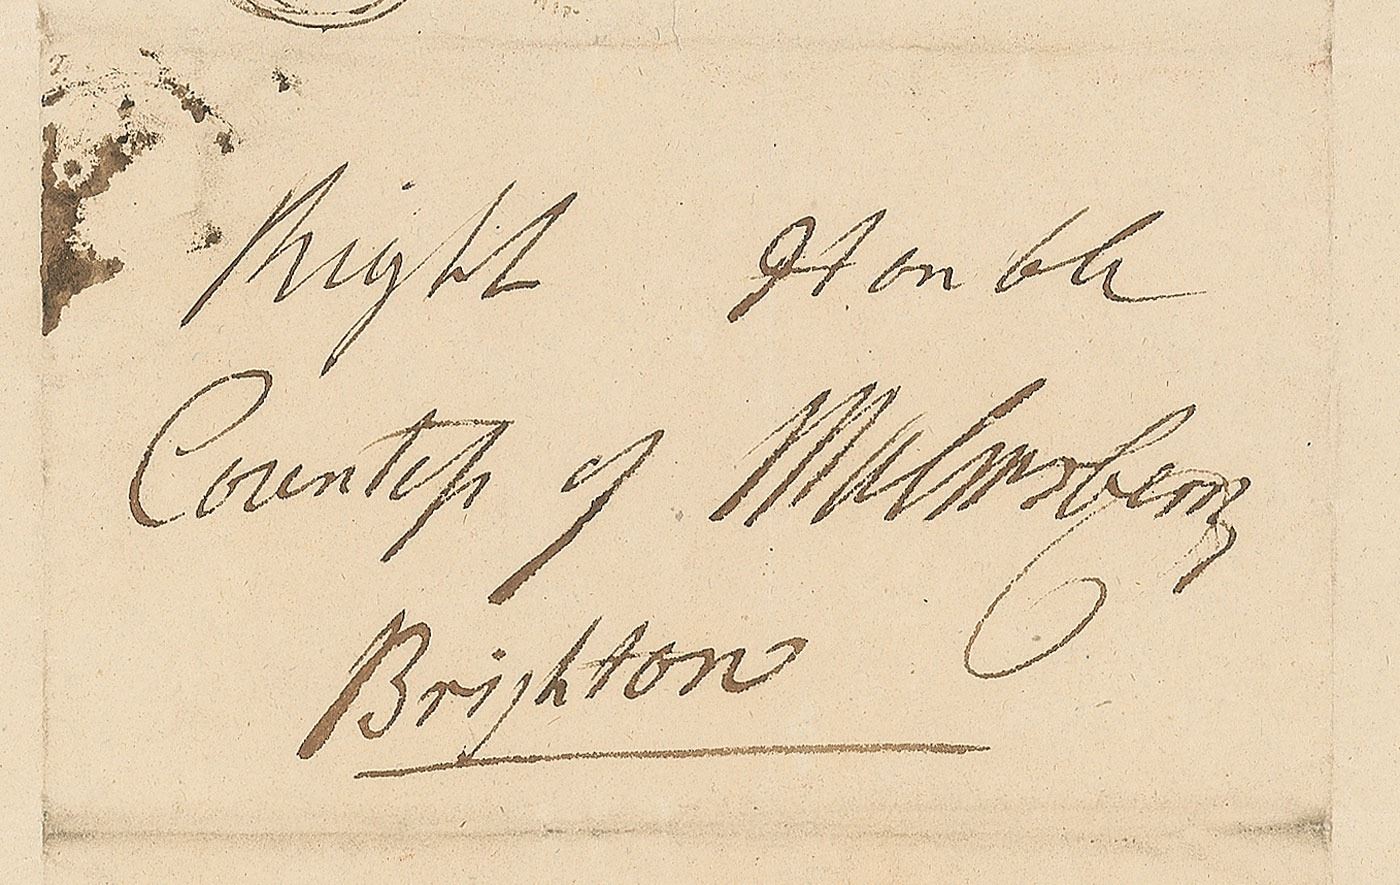 Right Honble
Countess of Malmsberry
Brighton